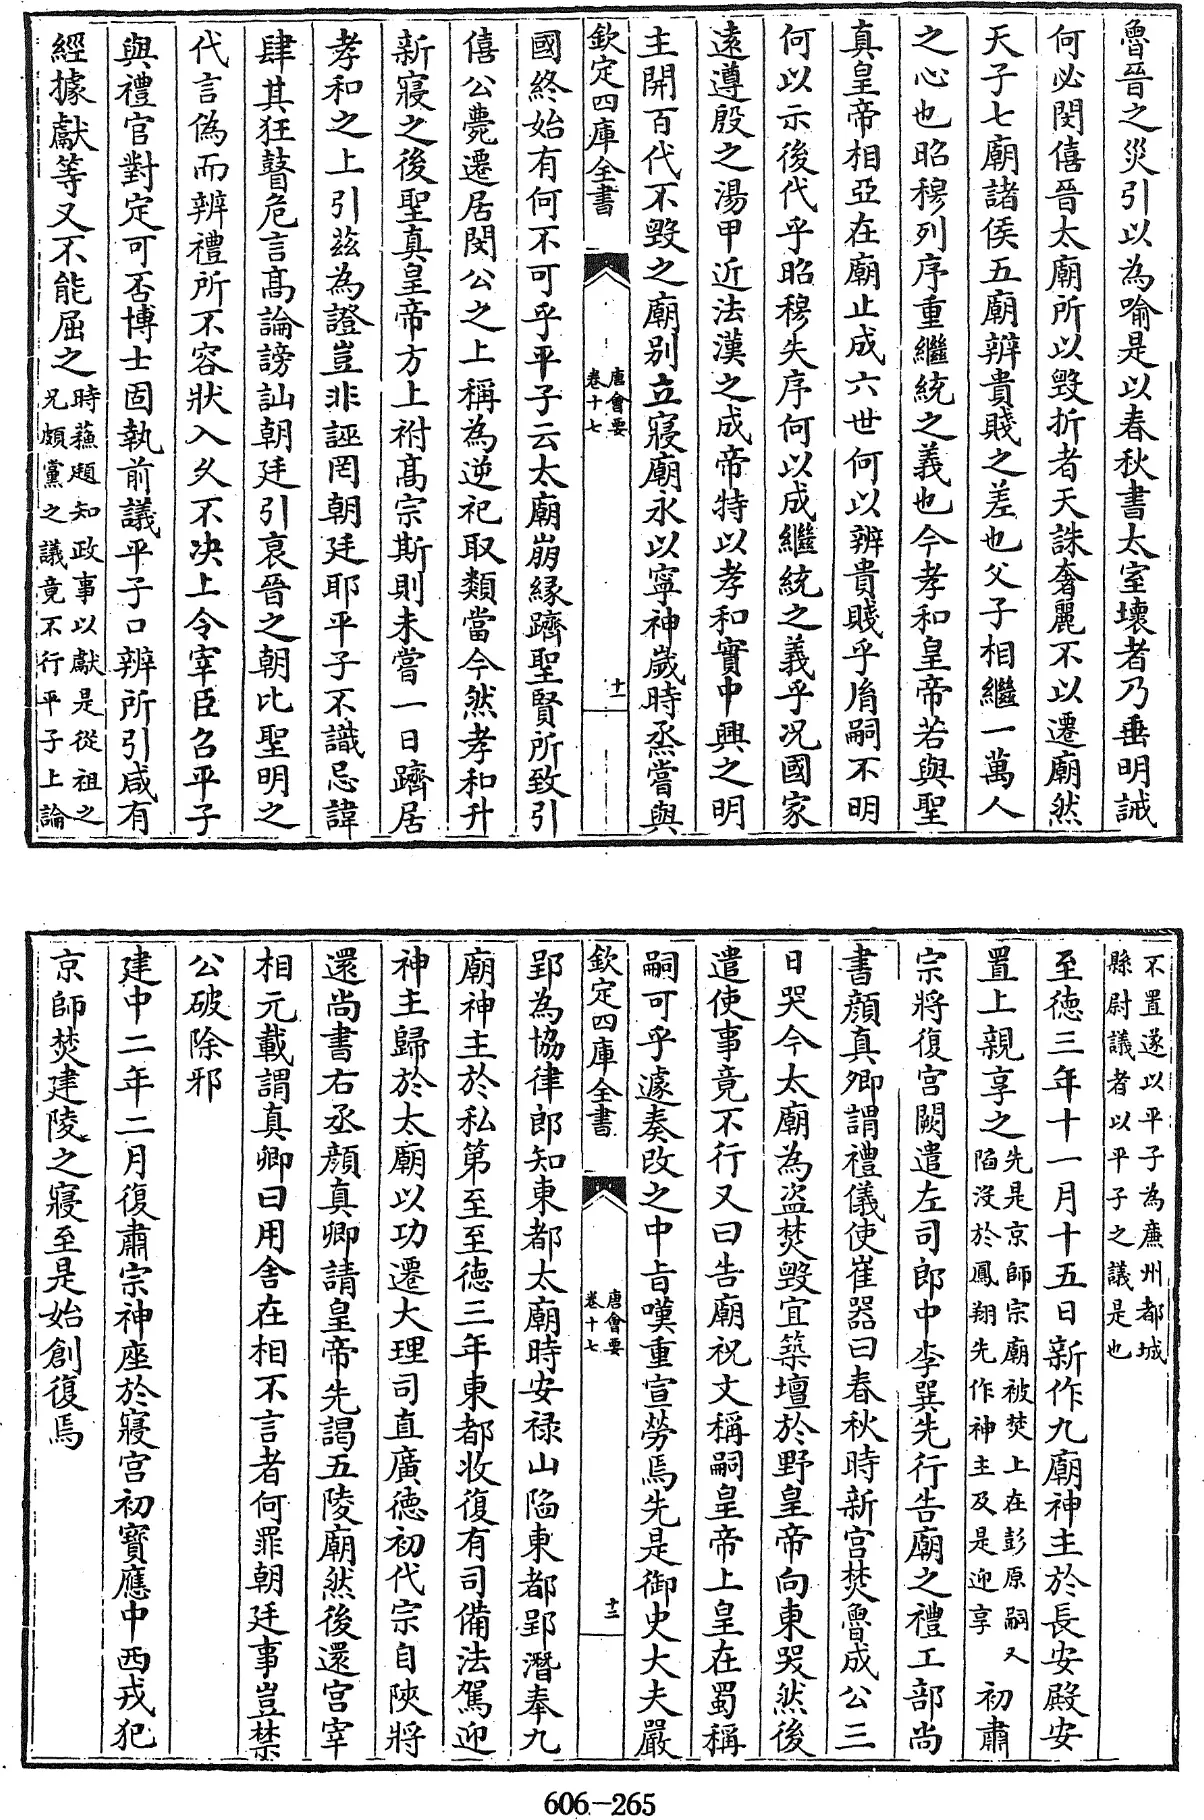 魯晉之災引以為喻是以春秋書太室壞者乃垂明誡
何必閔僖晉太廟所以毀折者天誅奢麗不以遷廟然
天子七廟諸侯五廟辨貴賤之差也父子相繼一萬人
之心也昭穆列序重繼統之義也今孝和皇帝若與聖
真皇帝相亞在廟止成六世何以辨貴賤乎胤嗣不明
何以示後代乎昭穆失序何以成繼統之義乎况國家
遠遵殷之湯甲近法漢之成帝特以孝和實中興之明
主開百代不毀之廟别立寢廟永以寧神歲時烝嘗與
欽定四庫全書
唐會要
卷十七
十一
國終始有何不可乎平子云太廟崩縁躋聖賢所致引
僖公薨遷居閔公之上稱為逆祀取類當今然孝和升
新寢之後聖真皇帝方上祔髙宗斯則未嘗一日躋居
孝和之上引兹為證豈非誣罔朝廷耶平子不識忌諱
肆其狂瞽危言髙論謗訕朝廷引哀晉之朝比聖明之
代言偽而辨禮所不容狀入久不决上令宰臣召平子
與禮官對定可否博士固執前議平子口辨所引咸有
經據獻等又不能屈之
時蘓頲知政事以獻是從祖之
兄頗黨之議竟不行平子上論
不置遂以平子為㢘州都城
縣尉議者以平子之議是也
至徳三年十一月十五日新作九廟神主於長安殿安
置上親享之
先是京師宗廟被焚上在彭原嗣又
陷没於鳳翔先作神主及是迎享
初肅
宗將復宫闕遣左司郎中李巽先行告廟之禮工部尚
書顔真卿謂禮儀使崔器曰春秋時新宫焚魯成公三
日哭今太廟為盜焚毀宜築壇於野皇帝向東哭然後
遣使事竟不行又曰告廟祝文稱嗣皇帝上皇在蜀稱
嗣可乎遽奏改之中㫖嘆重宣勞焉先是御史大夫嚴
欽定四庫全書
唐會要
卷十七
十二
郢為協律郎知東都太廟時安禄山陷東都郢潛奉九
廟神主於私第至至徳三年東都收復有司備法駕迎
神主歸於太廟以功遷大理司直廣徳初代宗自陜將
還尚書右丞顔真卿請皇帝先謁五陵廟然後還宫宰
相元載謂真卿曰用舍在相不言者何罪朝廷事豈禁
公破除邪
建中二年二月復肅宗神座於寢宫初寳應中西戎犯
京師焚建陵之寢至是始創復焉
606-265